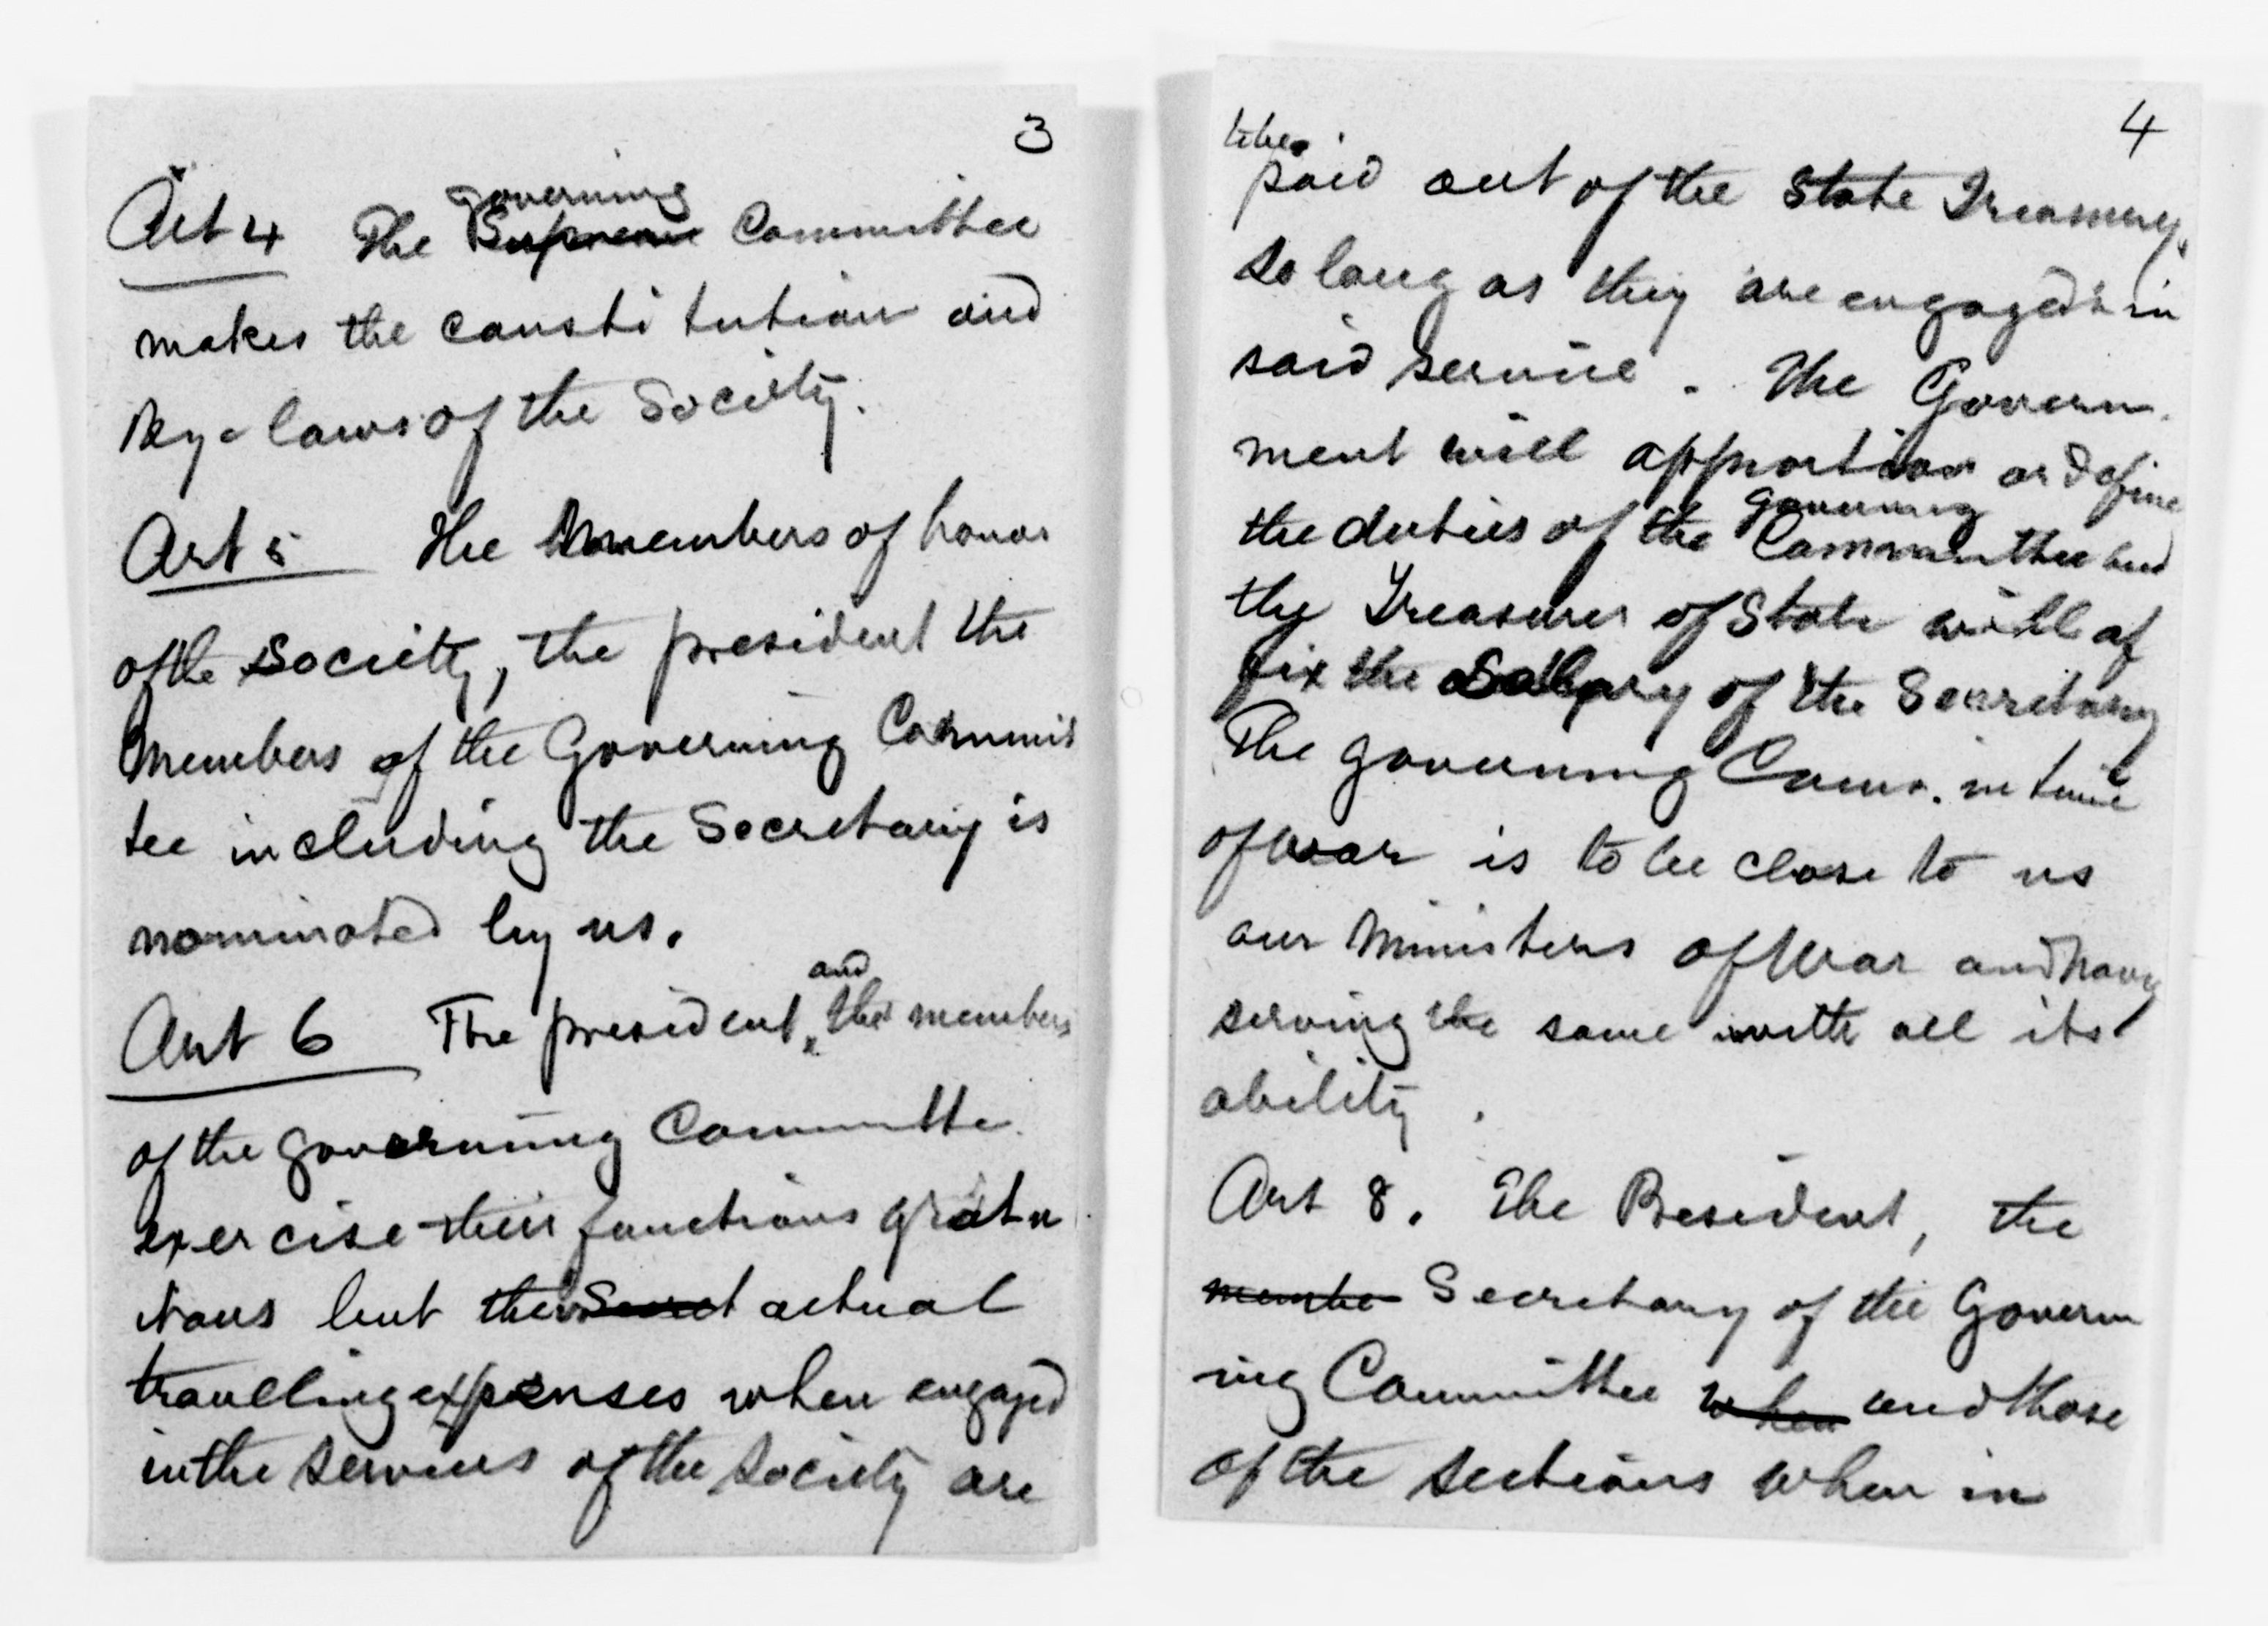 3
Art 4 The governing Supreme Committee
makes the constitution and
Bye-laws of the Society.
Art 5 The members of honor
of the Society, the president the
members of the Governing Commit
tee including the Secretary is
nominated by us.
Art 6 The president, and the members
of the governing Committe
exercise their functions gratu
itous but their Secret actual
travelling expenses when engaged
in the services of the society are
4
to be
paid out of the State Treasury,
so long as they are engaged in
said service. The Govern-
ment will apportion or define
the duties of the governing Committee and
the Treasurer of State will af
fix the salary of the Secretary
The governing Comm. in time
of war is to be close to us
our Ministers of War and navy
serving the same with all its
ability.
Art 8. The President, the
membe Secretary of the Govern
ing Committee when and those
of the sections when in